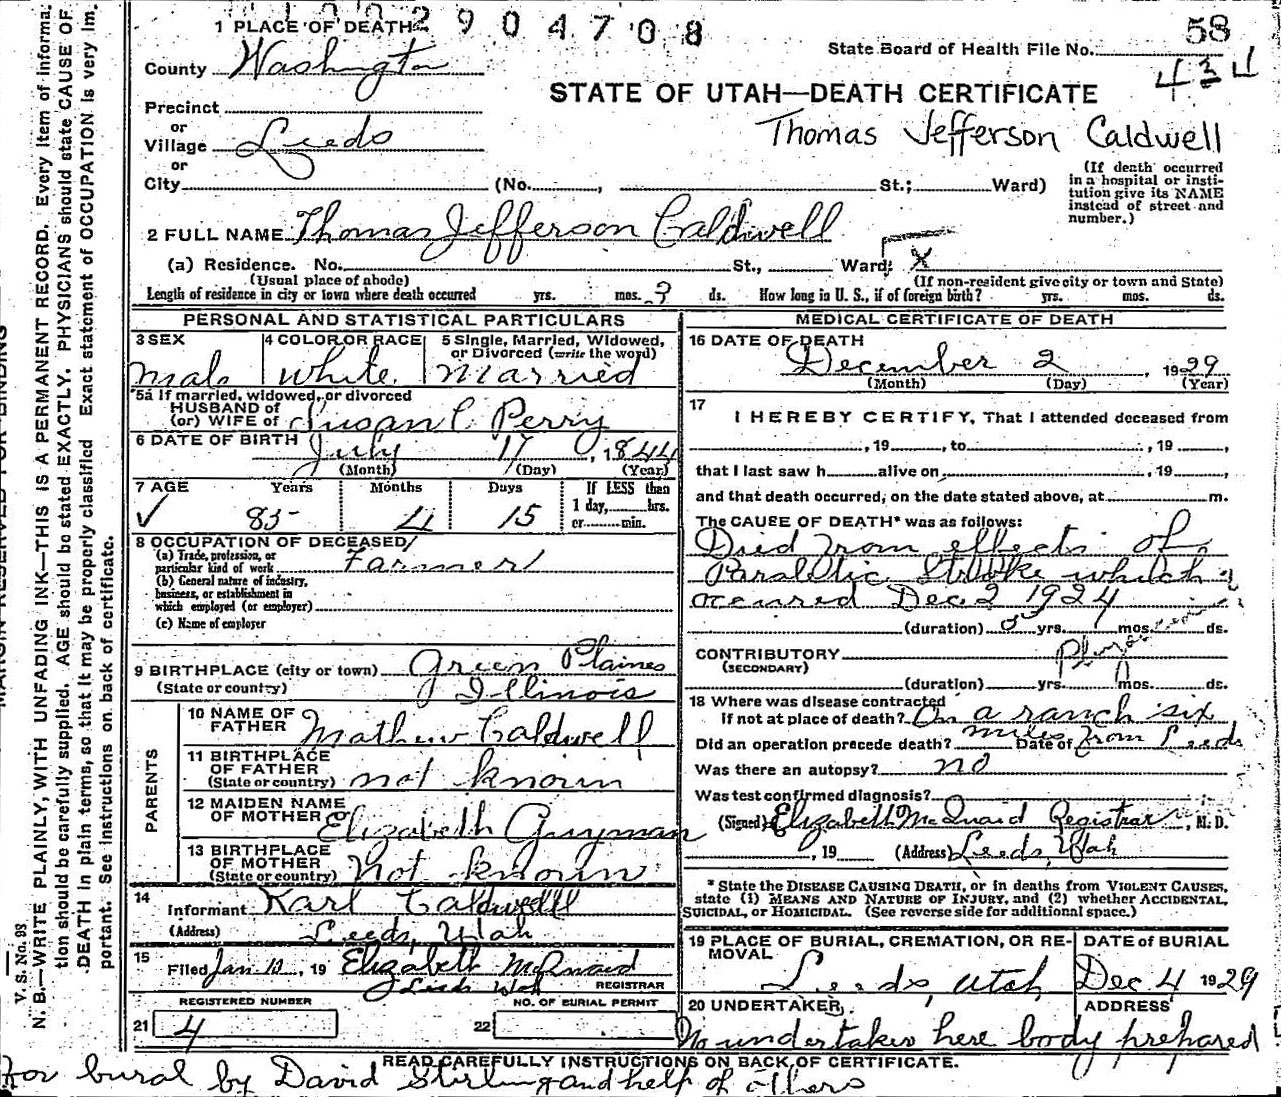 2904708
1 PLACE OF DEATH
58
State Board of Health File No.
434
County Washington
STATE OF UTAH—DEATH CERTIFICATE
Precinct
or
Thomas Jefferson Caldwell
Village Leeds
or
City (No. , St.; Ward)
(If death occurred in a hospital or insti-
tution give its NAME
instead of street and
number.)
2 FULL NAME Thomas Jefferson Caldwell
(a) Residence. No. St., Ward; X
(Usual place of abode) (If non-resident give city or town and State)
Length of residence in city or town where death occurred yrs. mos. 3 ds. How long in U. S., if of foreign birth? yrs. mos. ds.
PERSONAL AND STATISTICAL PARTICULARS
3 SEX 4 COLOR OR RACE 5 Single, Married, Widowed,
or Divorced (write the word)
Male White Married
5a If married, widowed, or divorced
HUSBAND of
(or) WIFE of Susan C Perry
6 DATE OF BIRTH July 17, 1844
(Month) (Day) (Year)
7 AGE Years Months Days If LESS than
1 day, hrs.
or min.
✓ 85 4 15
8 OCCUPATION OF DECEASED
(a) Trade, profession, or
particular kind of work Farmer
(b) General nature of industry,
business, or establishment in
which employed (or employer)
(c) Name of employer
9 BIRTHPLACE (city or town) Green Plaines
(State or country) Illinois
PARENTS
10 NAME OF
FATHER Mathew Caldwell
11 BIRTHPLACE
OF FATHER
(State or country) not known
12 MAIDEN NAME
OF MOTHER Elizabeth Guyman
13 BIRTHPLACE
OF MOTHER
(State or country) Not known
14
Informant Karl Caldwell
(Address) Leeds, Utah
15
Filed Jan 10, 19 Elizabeth McQuaid
Leeds Utah REGISTRAR
REGISTERED NUMBER NO. OF BURIAL PERMIT
21 4 22
MEDICAL CERTIFICATE OF DEATH
16 DATE OF DEATH
December 2, 1929
(Month) (Day) (Year)
17
I HEREBY CERTIFY, That I attended deceased from
, 19 , to , 19 ,
that I last saw h alive on , 19 ,
and that death occurred, on the date stated above, at m.
The CAUSE OF DEATH* was as follows:
Died from effects of
Paralitic Stroke which
occured Dec. 2 1924
(duration) 5 yrs. mos. ds.
CONTRIBUTORY
(SECONDARY)
(duration) yrs. mos. ds.
18 Where was disease contracted
if not at place of death? On a ranch six
Did an operation precede death? miles Date of from Leeds
Was there an autopsy? no
Was test confirmed diagnosis?
(Signed) Elizabeth McQuaid Registrar, M. D.
, 19 (Address) Leeds, Utah
* State the DISEASE CAUSING DEATH, or in deaths from VIOLENT CAUSES,
state (1) MEANS AND NATURE OF INJURY, and (2) whether ACCIDENTAL,
SUICIDAL, or HOMICIDAL. (See reverse side for additional space.)
19 PLACE OF BURIAL, CREMATION, OR RE-
MOVAL DATE OF BURIAL
Leeds, Utah Dec 4 1929
20 UNDERTAKER ADDRESS
No undertaker here body prepared
READ CAREFULLY INSTRUCTIONS ON BACK OF CERTIFICATE.
For bural by David Stirling and help of others
V. S. No. 98
N. B.—WRITE PLAINLY, WITH UNFADING INK—THIS IS A PERMANENT RECORD. Every item of informa-
tion should be carefully supplied. AGE should be stated EXACTLY. PHYSICIANS should state CAUSE OF
DEATH in plain terms, so that it may be properly classified. Exact statement of OCCUPATION is very im-
portant. See instructions on back of certificate.
MARGIN RESERVED FOR BINDING